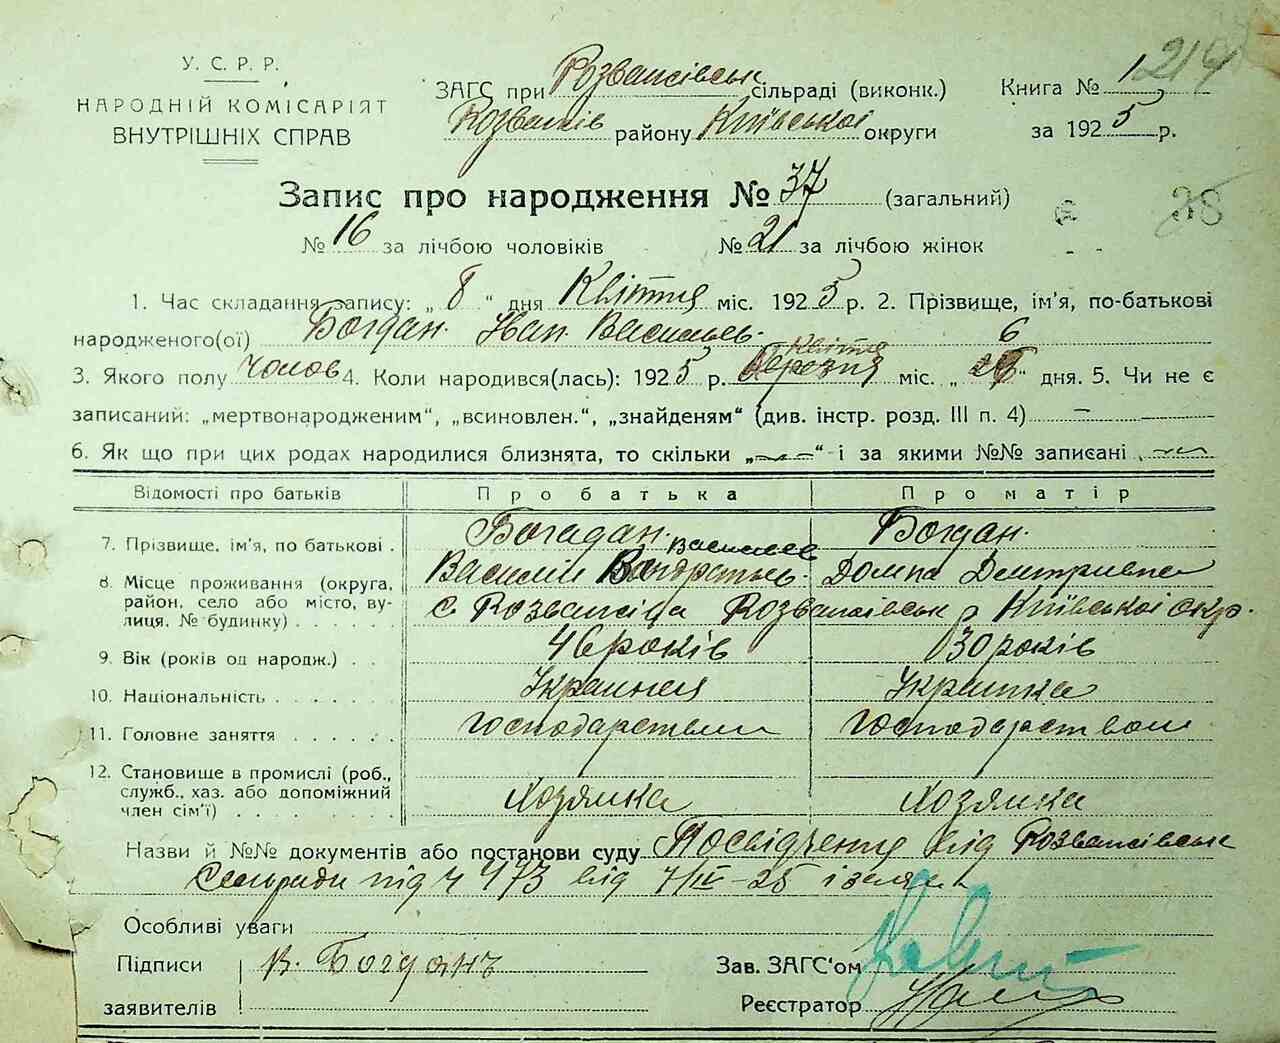 У. С. Р. Р.
НАРОДНІЙ КОМІСАРІЯТ
ВНУТРІШНІХ СПРАВ
ЗАГС при Розважівськ сільраді (виконк.) Книга № 1
Розважів району Київської округи за 1925 р.
Запис про народження № 37 (загальний) 38
№ 16 за лічбою чоловіків № 21 за лічбою жінок
1. Час складання запису: „ 8 “ дня Квітня міс. 1925 р. 2. Прізвище, ім'я, по-батькові
народженого(ої) Богдан Іван Васильев. 6
Квітня
3. Якого полу Чолов 4. Коли народився(лась): 1925 р. березня міс. „ “ дня. 5. Чи не є
записаний: „мертвонародженим“, „всиновлен.“, „знайденям“ (див. інстр. розд. III п. 4) —
6. Як що при цих родах народилися близнята, то скільки „ — “ і за якими №№ записані —
Відомості про батьків Про батька Про матір
7. Прізвище, ім'я, по батькові . Богадан. Богдан.
Васильев
Василій Домна Дмитривна
8. Місце проживання (округа,
район, село або місто, ву- с. Розважіва Розважівськ р Київської окр.
лиця, № будинку) . . . . .
9. Вік (років од народж.) . . 46 років 30 років
10. Національність . . . . . . Украинец Украинка
11. Головне заняття . . . . . . Господарством Господарством
12. Становище в промислі (роб.,
служб., хаз. або допоміжний
член сім'ї) . . . . . . . . Хозяина Хозяика
Назви й №№ документів або постанови суду Посвідчення від Розважівськ
Сельради під ч 473 від 7/IV-25 і заява
Особливі уваги
Підписи В. Богданъ Зав. ЗАГС'ом
заявителів Реєстратор